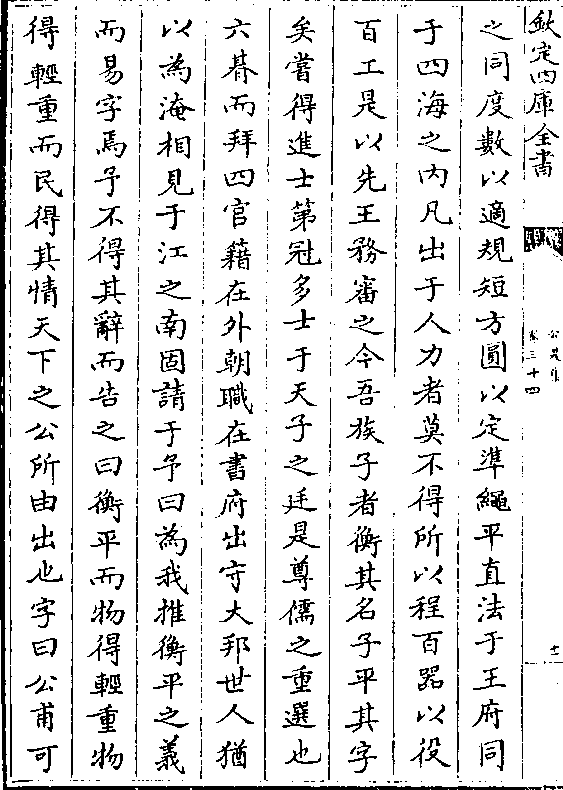 欽定四庫全書
公是集
卷三十四
十一
之同度數以適規短方圓以定準繩平直法于王府同
于四海之内凡出于人力者莫不得所以程百器以役
百工是以先王務審之今吾族子者衡其名子平其字
矣嘗得進士第冠多士于天子之廷是尊儒之重選也
六朞而拜四官籍在外朝職在書府出守大邦世人猶
以為淹相見于江之南固請于予曰為我推衡平之義
而易字焉予不得其辭而告之曰衡平而物得輕重物
得輕重而民得其情天下之公所由出也字曰公甫可